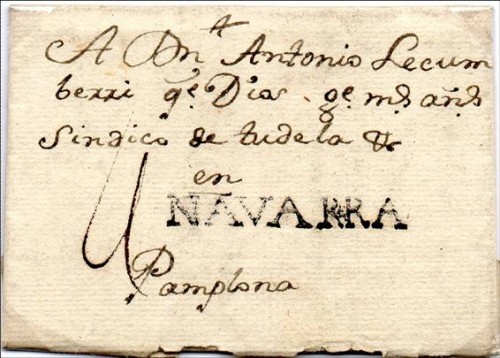 A Dn Antonio Lecum
berri qe Dios ge ms añs
Sindico de tudela &
en
NAVARRA
Pamplona